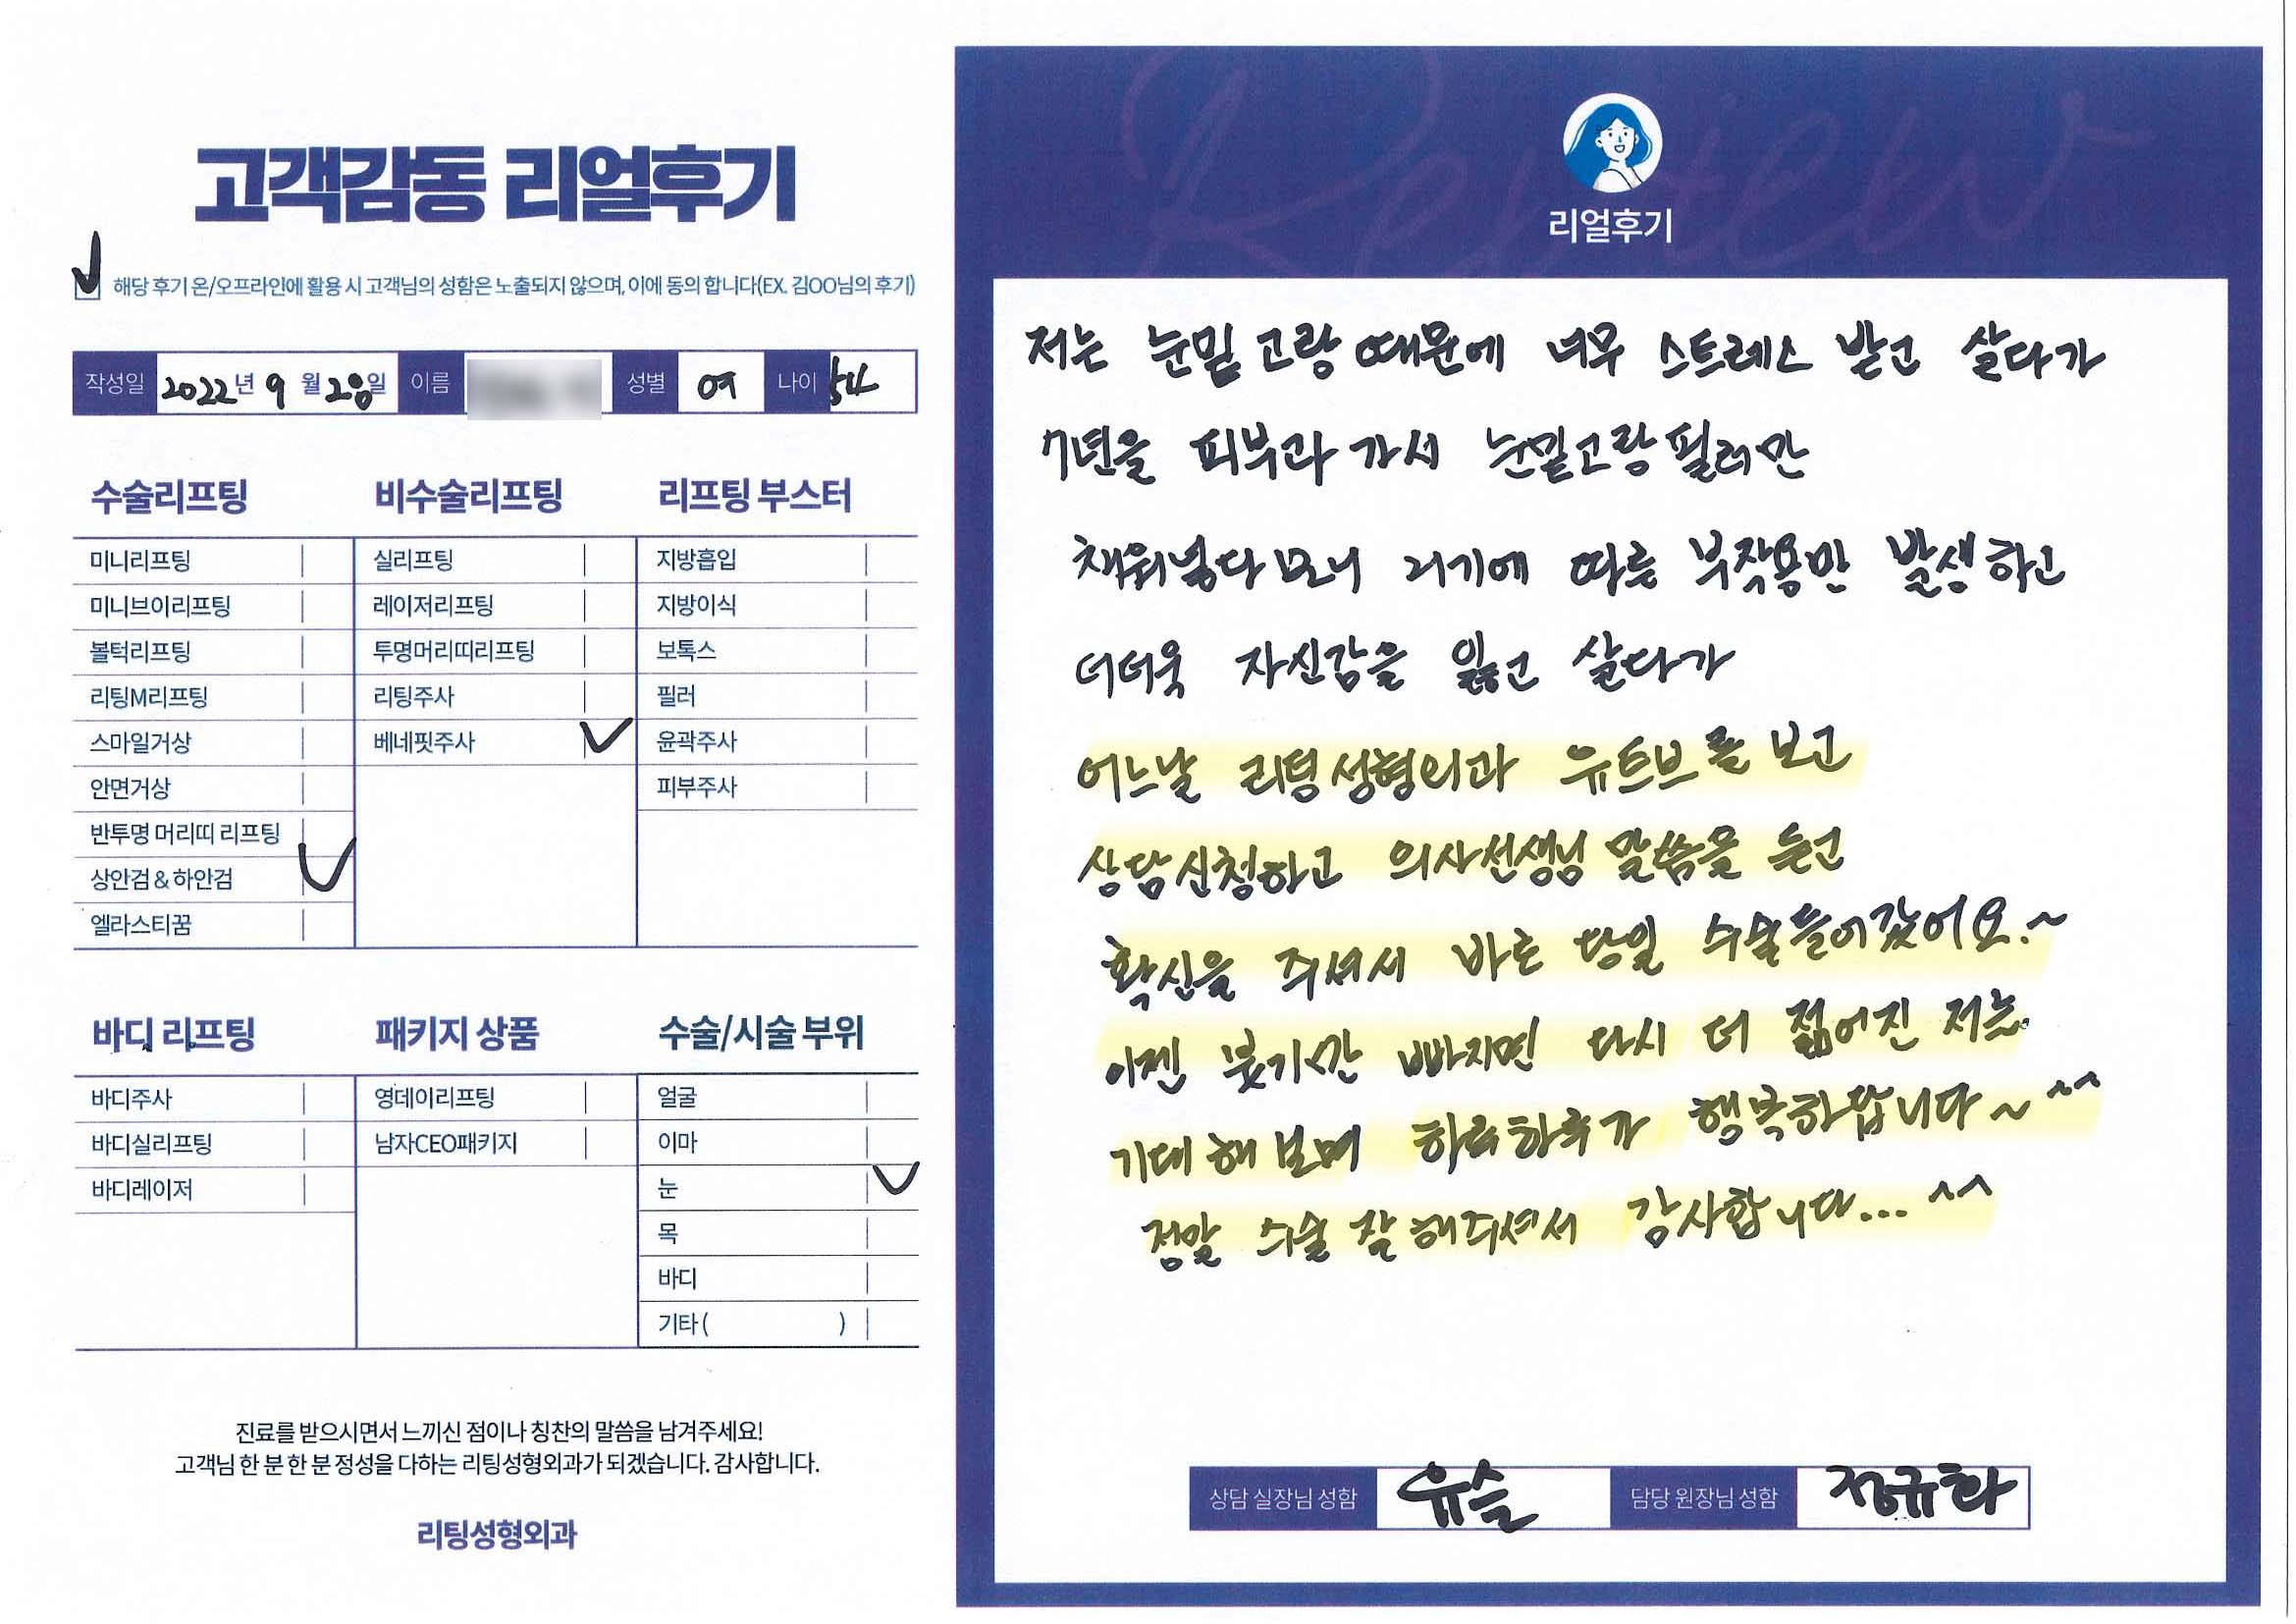 고객감동 리얼후기
해당 후기 온/오프라인에 활용 시 고객님의 성함은 노출되지 않으며, 이에 동의 합니다(EX. 김OO님의 후기)
작성일 2022년 9월 28일 이름 성별 여 나이 54
수술리프팅
미니리프팅
미니브이리프팅
볼턱리프팅
리팅M리프팅
스마일거상
안면거상
반투명 머리띠 리프팅
상안검 & 하안검
엘라스티꿈
비수술리프팅
실리프팅
레이저리프팅
투명머리띠리프팅
리팅주사
베네핏주사
리프팅 부스터
지방흡입
지방이식
보톡스
필러
윤곽주사
피부주사
바디 리프팅
바디주사
바디실리프팅
바디레이저
패키지 상품
영데이리프팅
남자CEO패키지
수술/시술 부위
얼굴
이마
눈
목
바디
기타 ( )
진료를 받으시면서 느끼신 점이나 칭찬의 말씀을 남겨주세요!
고객님 한 분 한 분 정성을 다하는 리팅성형외과가 되겠습니다. 감사합니다.
리팅성형외과
Review
리얼후기
저는 눈밑 고랑 때문에 너무 스트레스 받고 살다가
7년을 피부과 가서 눈밑고랑 필러만
채워넣다 보니 거기에 따른 부작용만 발생하고
더더욱 자신감을 잃고 살다가
어느날 리팅성형외과 유트브를 보고
상담신청하고 의사선생님 말씀을 듣고
확신을 주셔서 바로 당일 수술들어갔어요.~
이젠 붓기만 빠지면 다시 더 젊어진 저는
기대해 보며 하루하루가 행복하답니다~ ^^
정말 수술 잘 해주셔서 감사합니다... ^^
상담 실장님 성함 유슬 담당 원장님 성함 정규화